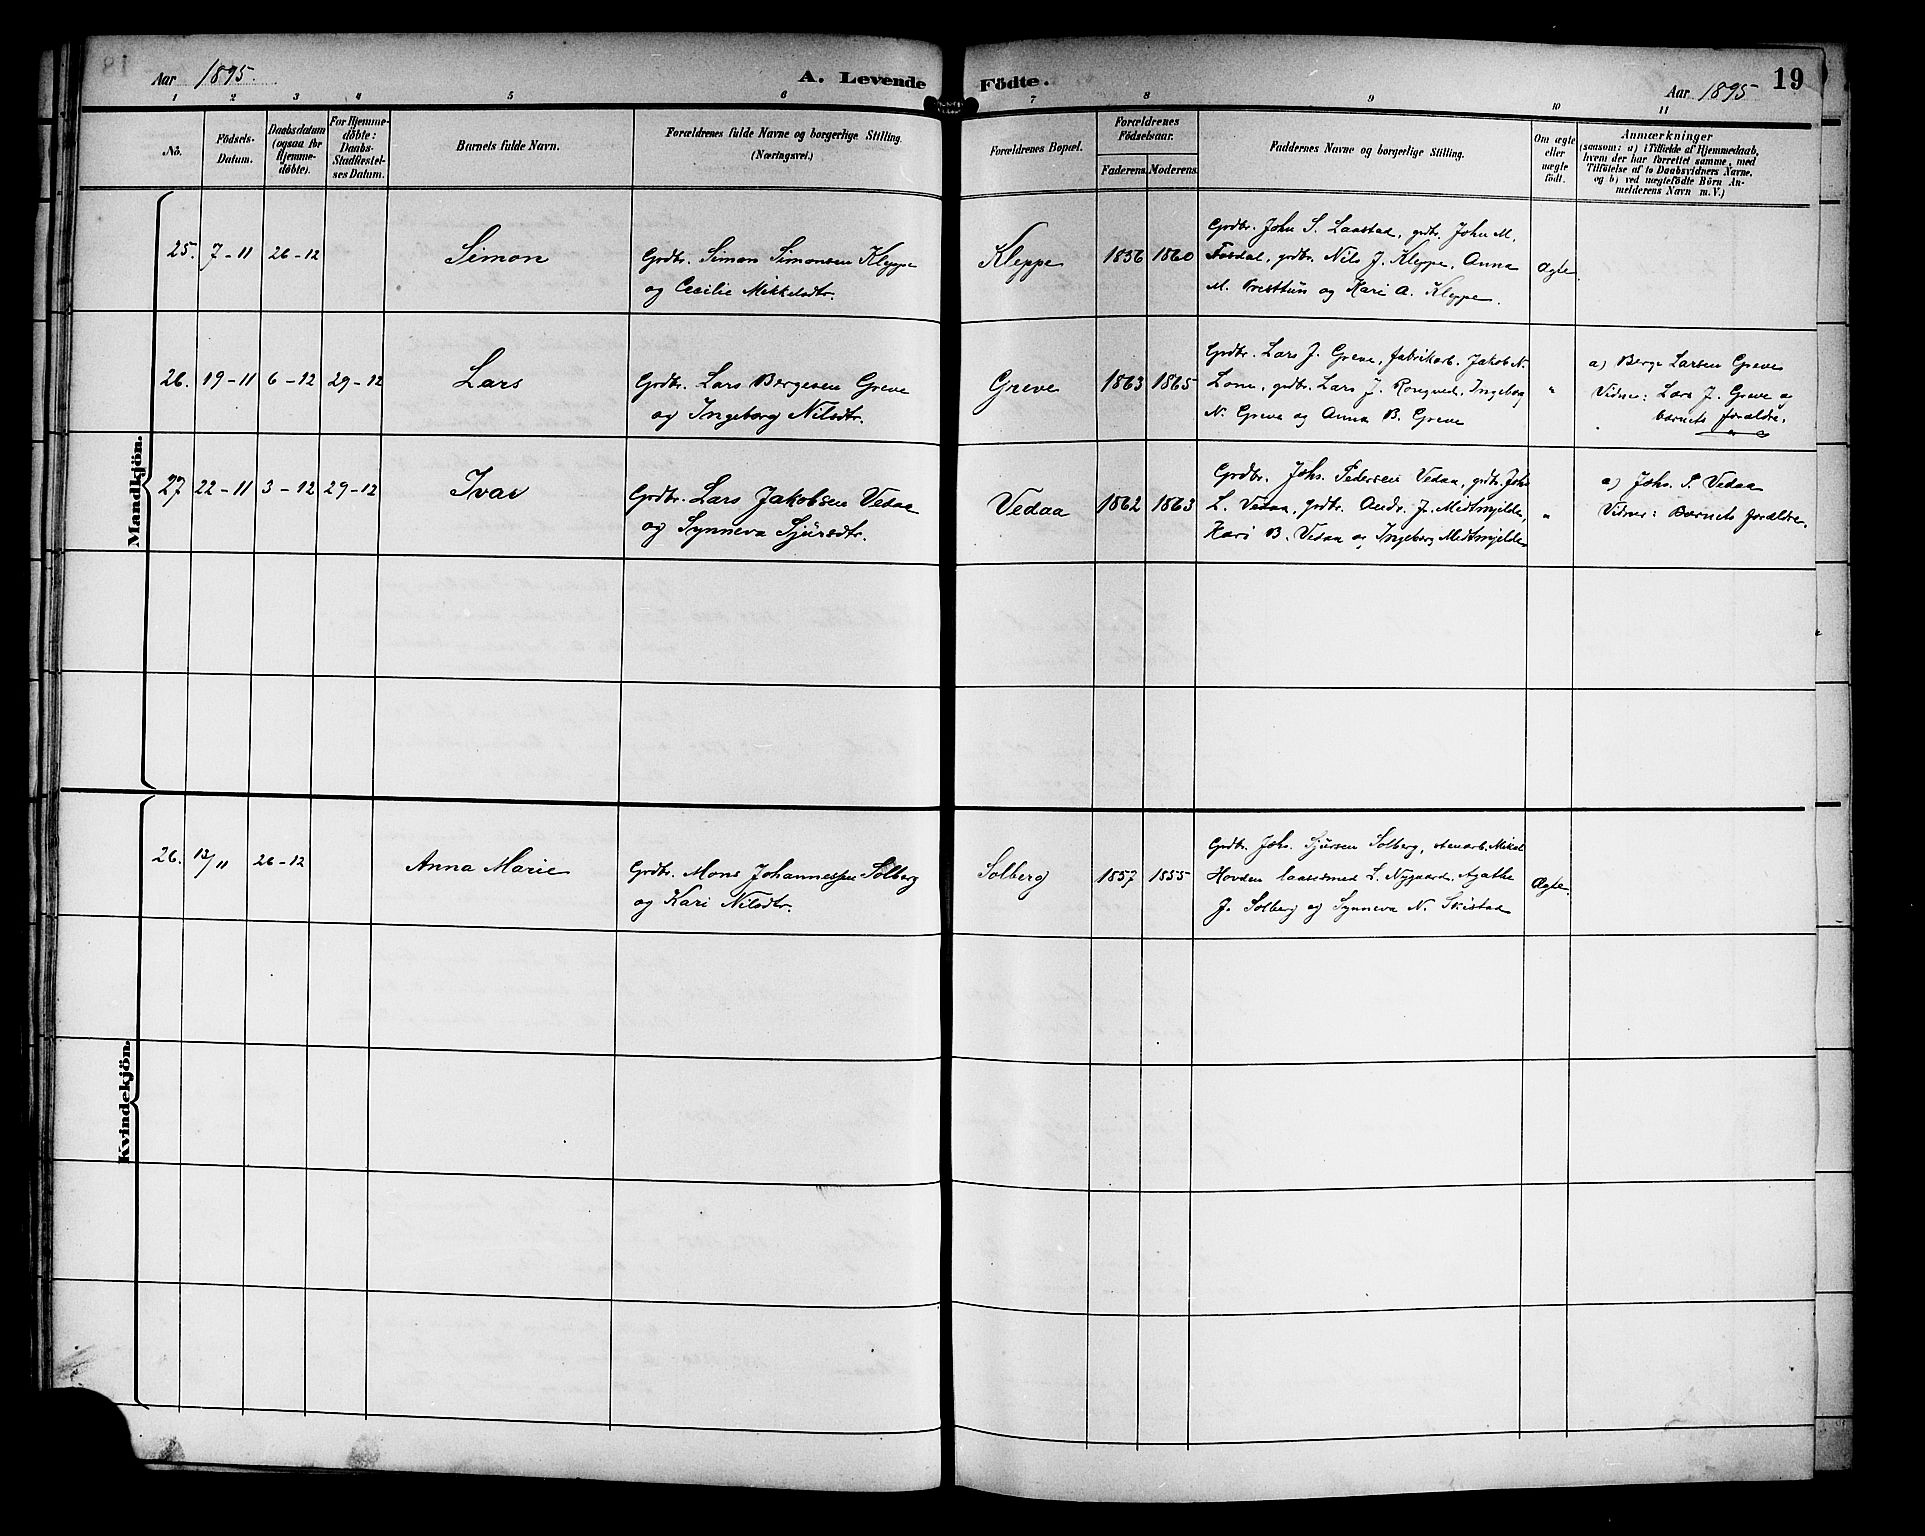 Aar 1895.
A. Levende
Födte.
Aar 1895
19
1 2 3 4 5 6 7 8 9 10 11
No.
Födsels-
Datum.
Daabsdatum
(ogsaa for
Hjemme-
døbte).
For Hjemme-
døbte:
Daabs-
Stadfæstel-
ses Datum.
Barnets fulde Navn.
Forældrenes fulde Navne og borgerlige Stilling.
(Næringsvei.)
Forældrenes Bopæl.
Forældrenes
Födselsaar.
Faderens. Moderens.
Faddernes Navne og borgerlige Stilling.
Om ægte
eller
uægte
født.
Anmærkninger
(saasom: a) i Tilfælde af Hjemmedaab,
hvem der har forrettet samme, med
Tilföielse af to Daabsvidners Navne,
og b) ved uægtefödte Börn An-
melderens Navn m.V.)
Mandkjön.
25. 7-11 26-12 Simon
Grdbr. Simon Simonsen Kleppe
og Cecilie Mikkelsdtr.
Kleppe 1856 1860
Grdbr. John S. Laastad, grdbr. John M.
Fosdal, grdbr. Nils J. Kleppe, Anna
M. Presthun og Kari A. Kleppe.
Ægte.
26. 19-11 6-12 29-12 Lars
Grdbr. Lars Bergesen Greve
og Ingeborg Nilsdtr.
Greve 1863 1865
Grdbr. Lars J. Greve, fabrikarb. Jakob N.
Lone, grdbr. Lars J. Rongved, Ingeborg
N. Greve og Anna B. Greve
"
a) Berge Larsen Greve
Vidner: Lars J. Greve og
barnets forældre.
27 22-11 3-12 29-12 Ivar
Grdbr. Lars Jakobsen Vedaa
og Synneva Sjursdtr.
Vedaa 1862 1863
Grdbr. Johs. Pedersen Vedaa, grdbr. Johs
L. Vedaa, grdbr. Andr. J. Medtmjelde,
Kari B. Vedaa og Ingeborg Medtmjelde
"
a) Johs. P Vedaa
Vidner: Barnets forældre.
Kvindekjön.
26. 12/11 26-12 Anna Marie
Grdbr. Mons Johannessen Solberg
og Kari Nilsdtr.
Solberg 1857 1855
Grdbr. Johs. Sjursen Solberg, Mikal
Hovden L. Nygaard, Agathe
J. Solberg og Synneva N. Skistad
Ægte.